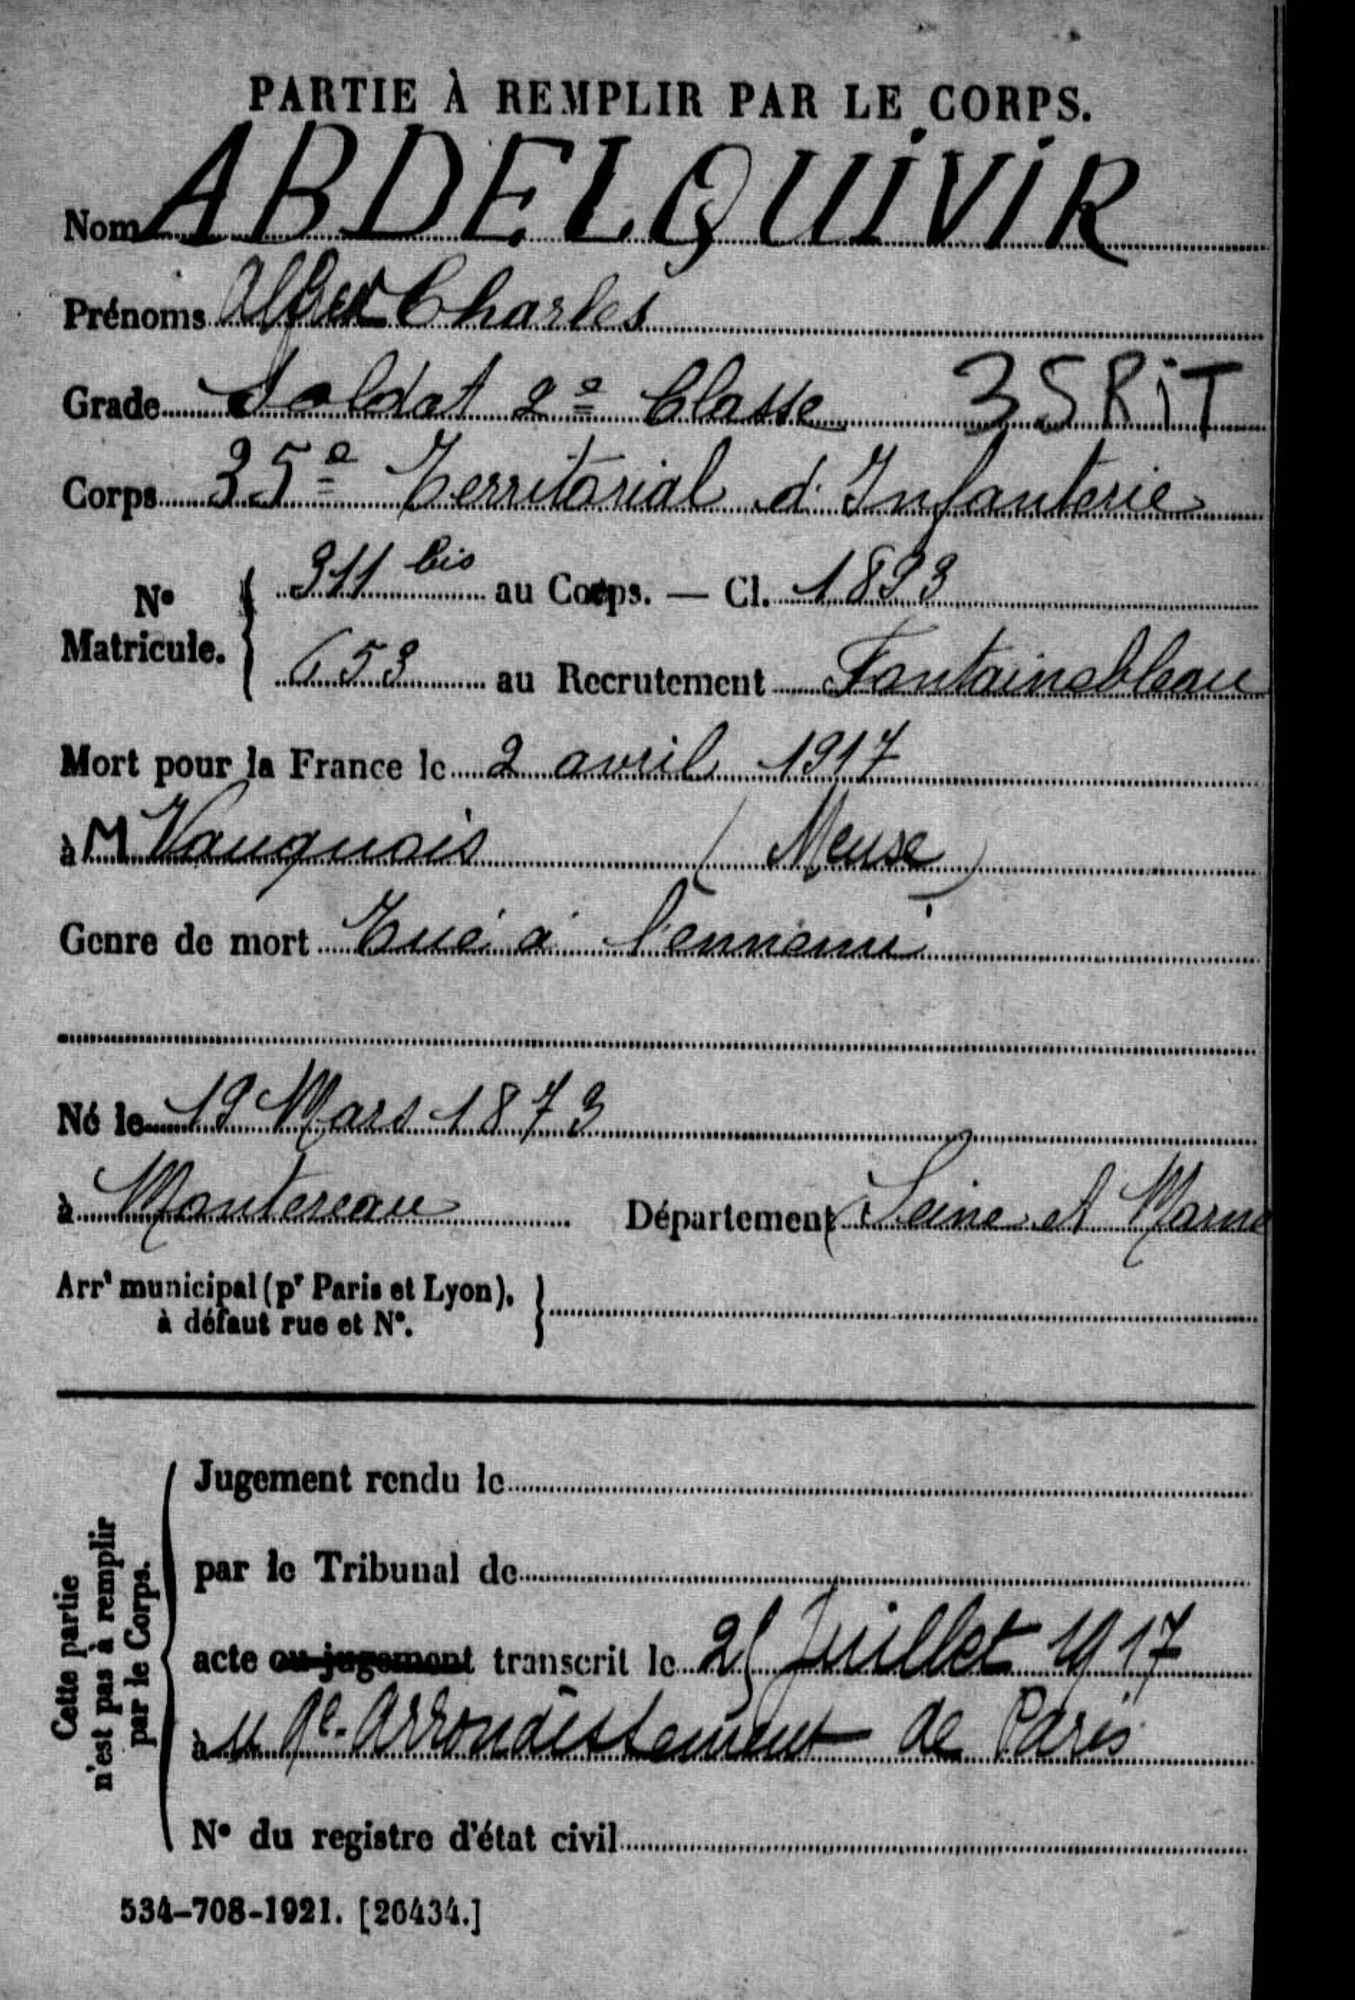 PARTIE À REMPLIR PAR LE CORPS.
Nom ABDELQUIVIR
Prénoms Alfred Charles
Grade Soldat 2e Classe 35RiT
Corps 35e Territorial d'Infanterie
No Matricule. { 311 bis au Corps. — Cl. 1893
653 au Recrutement Fontainebleau
Mort pour la France le 2 avril 1917
à M Vauquois (Meuse)
Genre de mort Tué à l'ennemi
Né le 19 Mars 1873
à Montereau Département (Seine et Marne
Arrt municipal (pr Paris et Lyon),
à défaut rue et No. }
Cette partie
n'est pas à remplir
par le Corps.
Jugement rendu le
par le Tribunal de
acte ou jugement transcrit le 25 Juillet 1917
à Arrondissement de Paris
No du registre d'état civil
534-708-1921. [26434.]